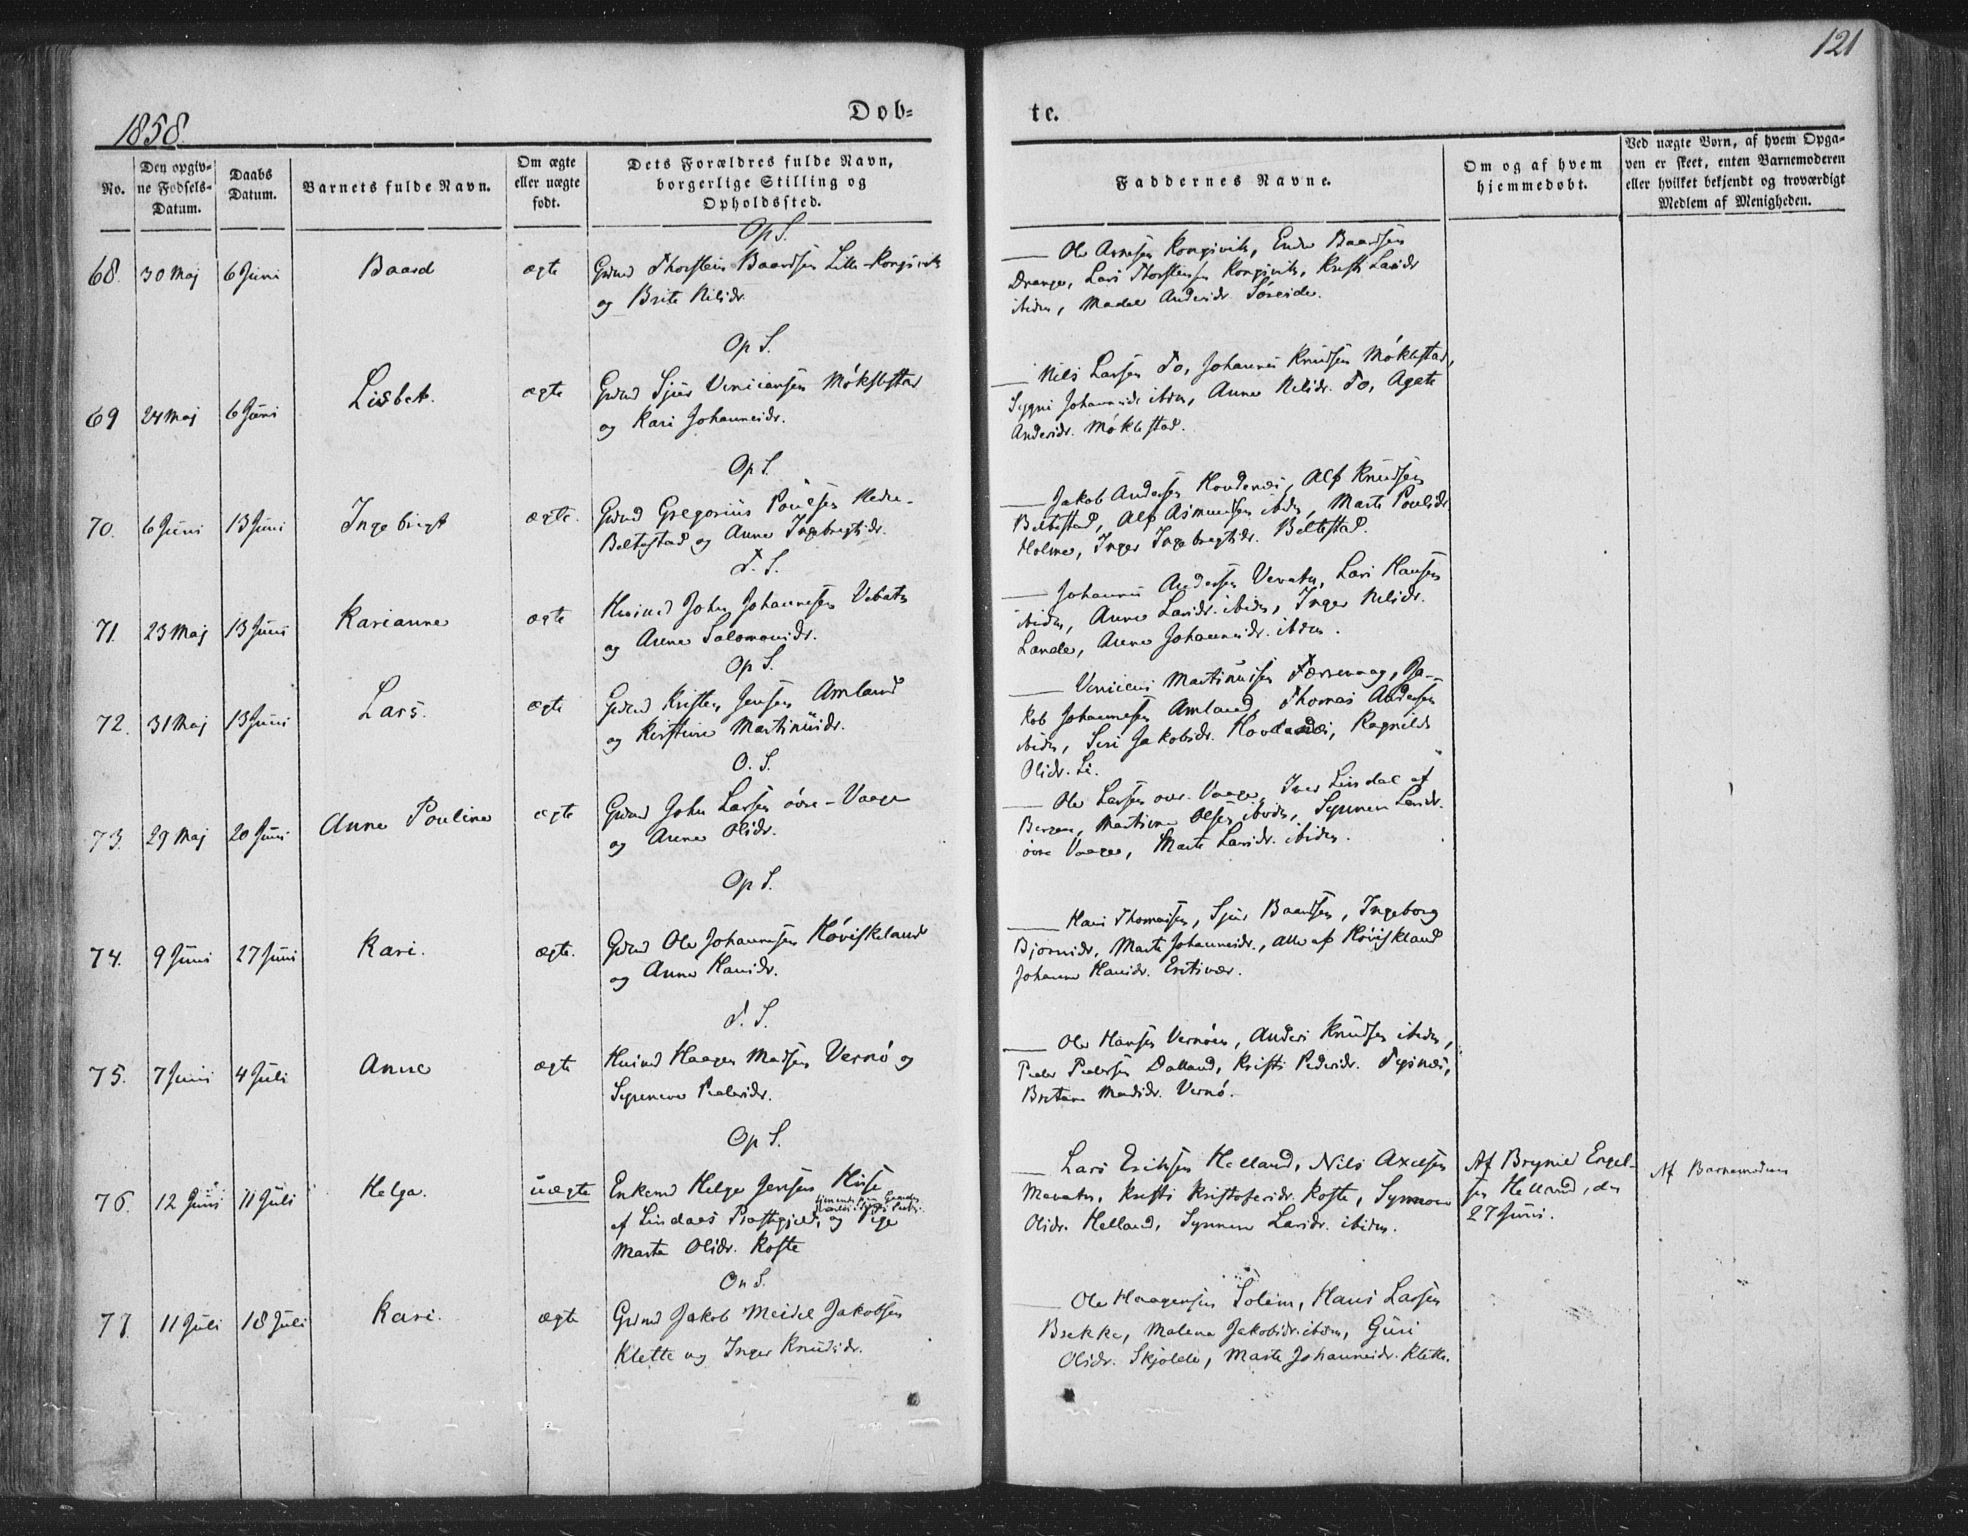 121
1858.
Dob-
te.
No.
Den opgiv-
ne Fødsels-
Datum.
Daabs
Datum.
Barnets fulde Navn.
Om ægte
eller uægte
født.
Dets Forældres fulde Navn,
borgerlige Stilling og
Opholdssted.
Faddernes Navne.
Om og af hvem
hjemmedøbt.
Ved uægte Born, af hvem Opga-
ven er skeet, enten Barnemoderen
eller hvilket bekjendt og troværdigt
Medlem af Menigheden.
Op S.
68. 30 Maj 6 Juni Baard ægte Grdmd Thorstein Baardsen Litle-Kongsvik
og Brite Nilsdr.
Ole Arnesen Kongsvik, Endre Baardsen
Drange, Lars Thorstensen Kongsvik, Kristi Larsdr
ibidm, Madel Andersdr.
Op S.
69 24 Maj 6 Juni Lisbet. ægte Grdmd Sjur Vincensen Møklestad
og Kari Johannesdr.
Nils Larsen To, Johannes Knudsen Møklestad,
Sygni Johannesdr ibidm, Anne Nilsdr. To, Agate
Andersdr. Møklestad.
Op S.
70. 6 Juni 13 Juni Ingebrigt ægte. Grdmd Gregorius Poulsen Nedre-
Beltestad og Anne Ingebrigtsdr.
Jakob Andersen Hovdenes, Alf Knudsen
Beltestad, Alf Asmundsen ibidm, Marte Poulsdr
Holme, Inger Ingebrigtsdr. Beltestad.
T. S.
71. 23 Maj 13 Juni Karianne ægte Husmd John Johannesen Vevatn
og Anne Salomonsdr.
Johannes Andersen Vevatn, Lars Hansen
ibidm, Anne Larsdr. ibidm, Inger Nilsdr.
Lande, Anne Johannesdr. ibidm.
Op S.
72. 31 Maj 13 Juni Lars. ægte Grdmd Kristen Jensen Amland
og Kirstine Martinusdr.
Vincens Martinussen Færevaag, Ja-
kob Johannesen Amland, Thomas Andersen
ibidm, Siri Jakobsdr. Hovdenes, Ragnilde
Olsdr. Li.
O. S.
73. 29 Maj 20 Juni Anne Pouline ægte Grdmd John Larsen øvre-Vaage
og Anne Olsdr.
Ole Larsen øvr. Vaage, Iver Lindal af
Bergen, Martine Olsen ibidm, Synneve Larsdr.
øvre Vaage, Marte Larsdr. ibidm.
Op S.
74. 9 Juni 27 Juni Kari. ægte. Grdmd Ole Johannesen Høviskeland
og Anne Hansdr.
Hans Thomassen, Sjur Baardsen, Ingeborg
Bjørnsdr, Marte Johannesdr., alle af Høviskland
Johanne Hansdr.
T. S.
75. 7 Juni 4 Juli Anne ægte Husmd Haagen Madsen Vernø og
Synneve Pedersdr.
Ole Hansen Vernøen, Anders Knudsen ibidm,
Peder Pedersen Dalland, Kristi Pedersdr. Tysnes,
Britane Madsdr. Vernø.
Op S.
76. 12 Juni 11 Juli Helga. uægte Enkemd Helge Jensen Huse
af Lindaas Præstegjeld, og Pige
Marta Olsdr. Kofte
Lars Eriksen Helland, Nils Axelsen
Mevatn, Kristi Kristofersdr. Kofte, Synneve
Olsdr. Helland, Synneve Larsdr. ibidm.
Af Brynild Engel-
sen Helland, den
27 Juni.
Af Barnemoderen
On S.
77. 11 Juli 18 Juli Kari. ægte Grdmd Jakob Meidel Jakobsen
Klette og Inger Knudsdr.
Ole Haagensen Solem, Hans Larsen
Brekke, Malena Jakobsdr. ibidm, Guri
Olsdr. Skjolde, Marte Johannesdr. Klette.